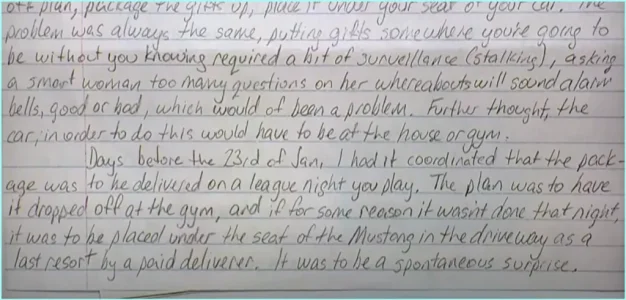 off plan, package the gifts up, place it under your seat of your car. The
problem was always the same, putting gifts somewhere you're going to
be without you knowing required a bit of surveillance (stalking), asking
a smart woman too many questions on her whereabouts will sound alarm
bells, good or bad, which would of been a problem. Further thought, the
car, in order to do this would have to be at the house or gym.
Days before the 23rd of Jan, I had it coordinated that the pack-
age was to be delivered on a league night you play. The plan was to have
it dropped off at the gym, and if for some reason it wasn't done that night,
it was to be placed under the seat of the Mustang in the driveway as a
last resort by a paid deliverer. It was to be a spontaneous surprise.